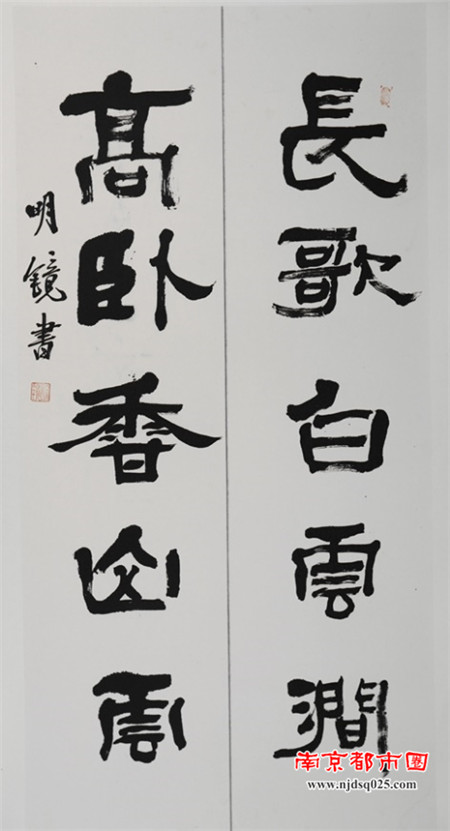 長歌白雲澗
高卧香山雲
明鏡書
南京都市圈
www.njdsq025.com